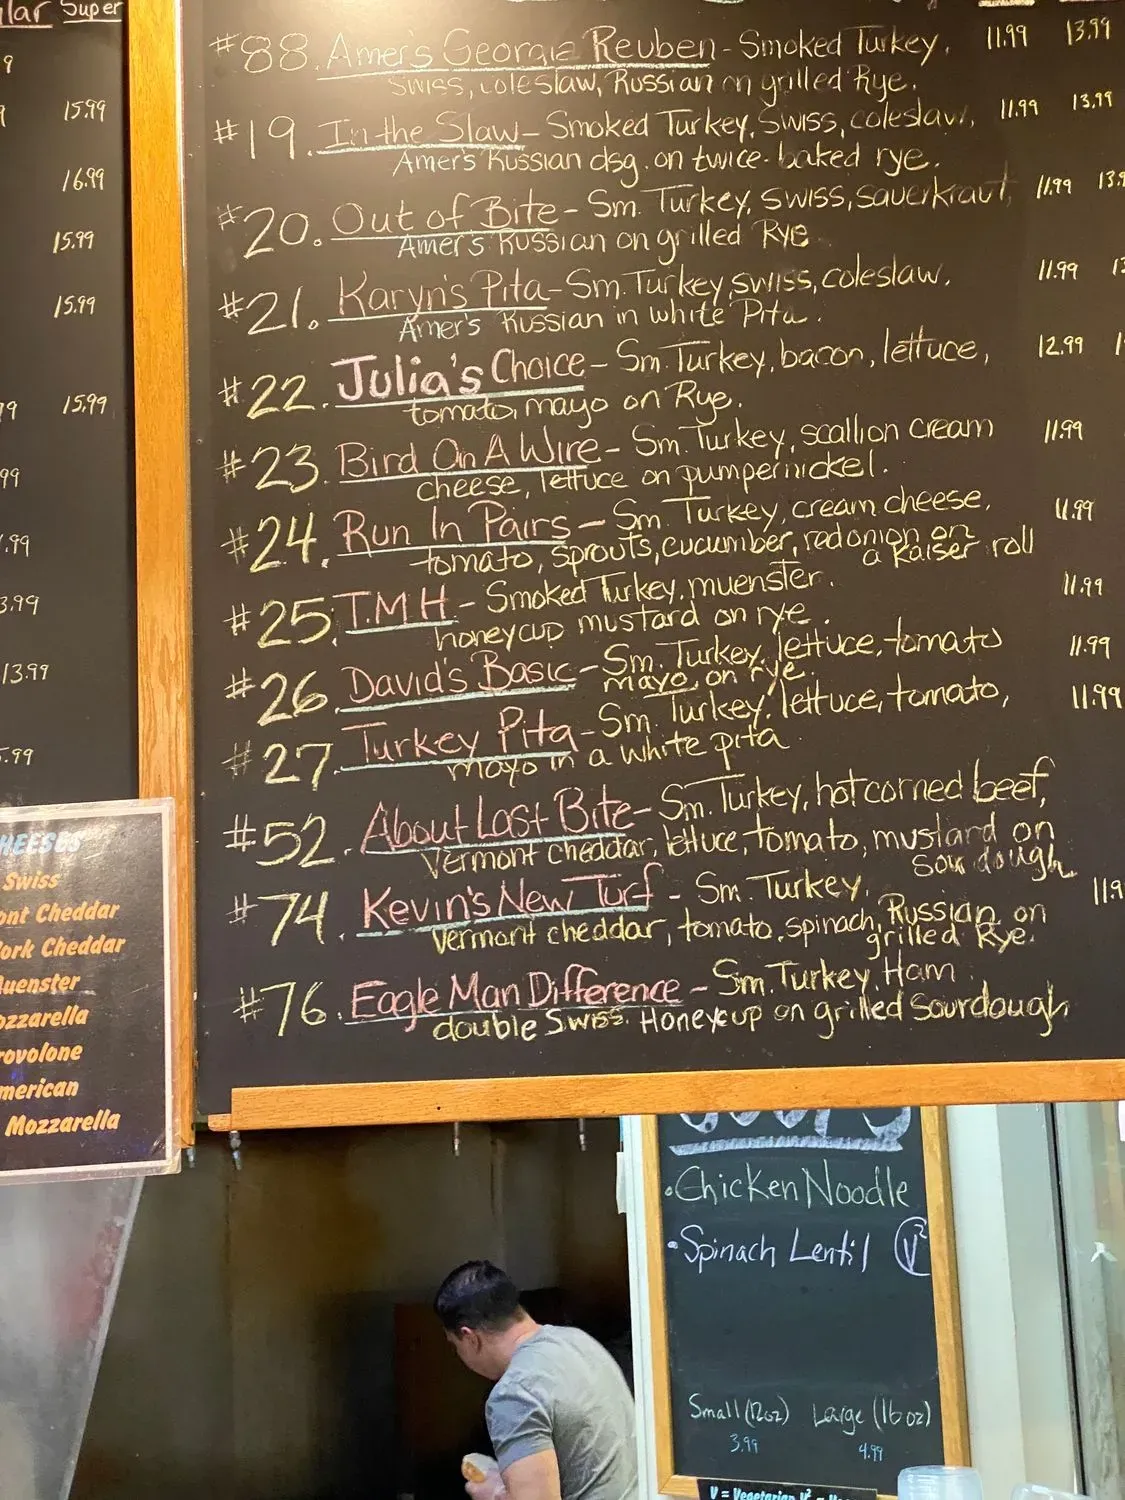 Super
15.99
16.99
15.99
15.99
15.99
13.99
#88. Amer's Georgia Reuben - Smoked Turkey, 11.99 13.99
Swiss, coleslaw, Russian on grilled Rye.
#19. In the Slaw - Smoked Turkey, Swiss, coleslaw, 11.99 13.99
Amer's Russian dsg. on twice-baked rye.
#20. Out of Bite - Sm. Turkey, swiss, sauerkraut, 11.99
Amer's Russian on grilled Rye
#21. Karyn's Pita - Sm. Turkey, swiss, coleslaw. 11.99
Amer's Russian in white Pita.
#22. Julia's Choice - Sm. Turkey, bacon, lettuce, 12.99
tomato, mayo on Rye.
#23. Bird On A Wire - Sm. Turkey, scallion cream 11.99
cheese, lettuce on pumpernickel.
#24. Run In Pairs - Sm. Turkey, cream cheese, 11.99
tomato, sprouts, cucumber, red onion on
a Kaiser roll
#25. T.M.H. - Smoked Turkey, muenster. 11.99
honeycup mustard on rye.
#26. David's Basic - Sm. Turkey, lettuce, tomato 11.99
mayo, on rye.
#27. Turkey Pita - Sm. Turkey, lettuce, tomato, 11.99
mayo in a white pita
#52. About Last Bite - Sm. Turkey, hot corned beef,
Vermont cheddar, lettuce, tomato, mustard on
Sourdough
#74. Kevin's New Turf - Sm. Turkey,
Vermont cheddar, tomato, spinach, Russian on
grilled Rye.
#76. Eagle Man Difference - Sm. Turkey, Ham
double Swiss. Honeycup on grilled Sourdough
Swiss
Cheddar
Cheddar
Mozzarella
Chicken Noodle
Spinach Lentil V²
Small (12oz) Large (16oz)
3.99 4.99
V = Vegetarian V²